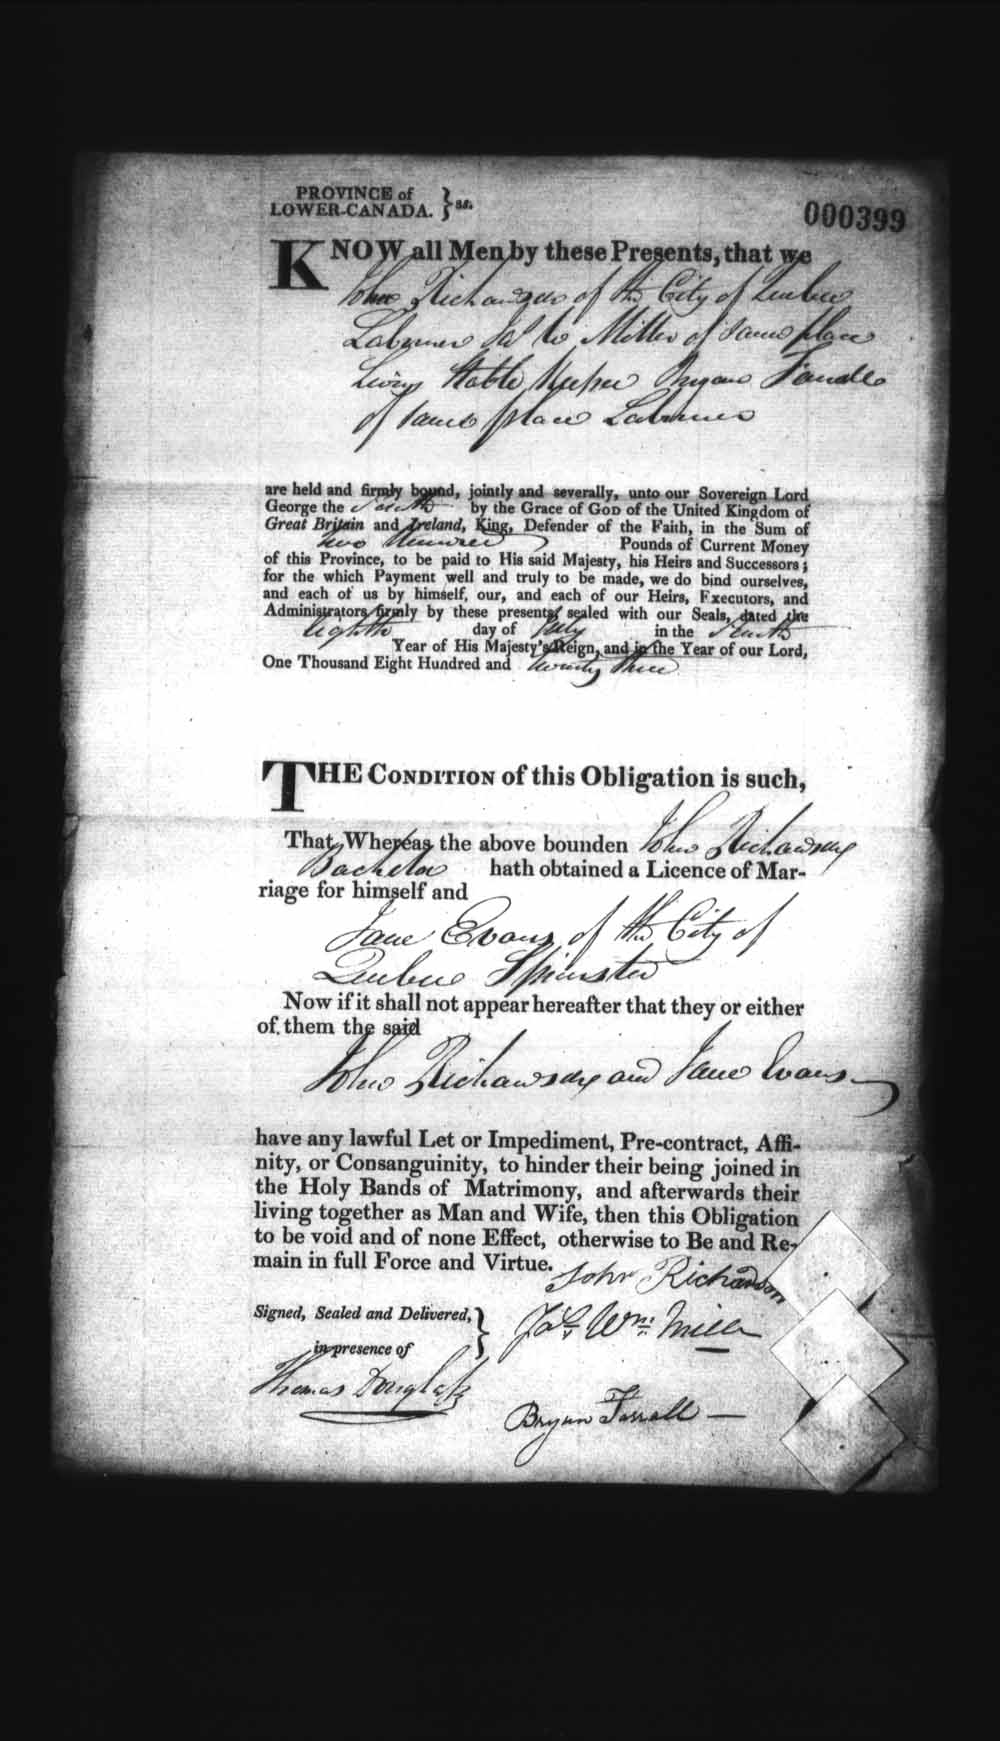 PROVINCE of
LOWER-CANADA. } ss.
000399
KNOW all Men by these Presents, that we
John Richardson of the City of Quebec
Labourer Jas Wm Miller of same place
Livery Stable Keeper Bryan Farrall
of same place Labourer
are held and firmly bound, jointly and severally, unto our Sovereign Lord
George the Fourth by the Grace of GOD of the United Kingdom of
Great Britain and Ireland, King, Defender of the Faith, in the Sum of
two Hundred Pounds of Current Money
of this Province, to be paid to His said Majesty, his Heirs and Successors;
for the which Payment well and truly to be made, we do bind ourselves,
and each of us by himself, our, and each of our Heirs, Executors, and
Administrators firmly by these presents, sealed with our Seals, dated the
eighth day of July in the fourth
Year of His Majesty's Reign, and in the Year of our Lord,
One Thousand Eight Hundred and twenty three
THE CONDITION of this Obligation is such,
That, Whereas the above bounden John Richardson
Bachelor hath obtained a Licence of Mar-
riage for himself and
Jane Evans of the City of
Quebec Spinster
Now if it shall not appear hereafter that they or either
of them the said
John Richardson and Jane Evans
have any lawful Let or Impediment, Pre-contract, Affi-
nity, or Consanguinity, to hinder their being joined in
the Holy Bands of Matrimony, and afterwards their
living together as Man and Wife, then this Obligation
to be void and of none Effect, otherwise to Be and Re-
main in full Force and Virtue.
John Richardson
Signed, Sealed and Delivered,
Jas Wm Miller
in presence of
Thomas Douglass
Bryan Farrall